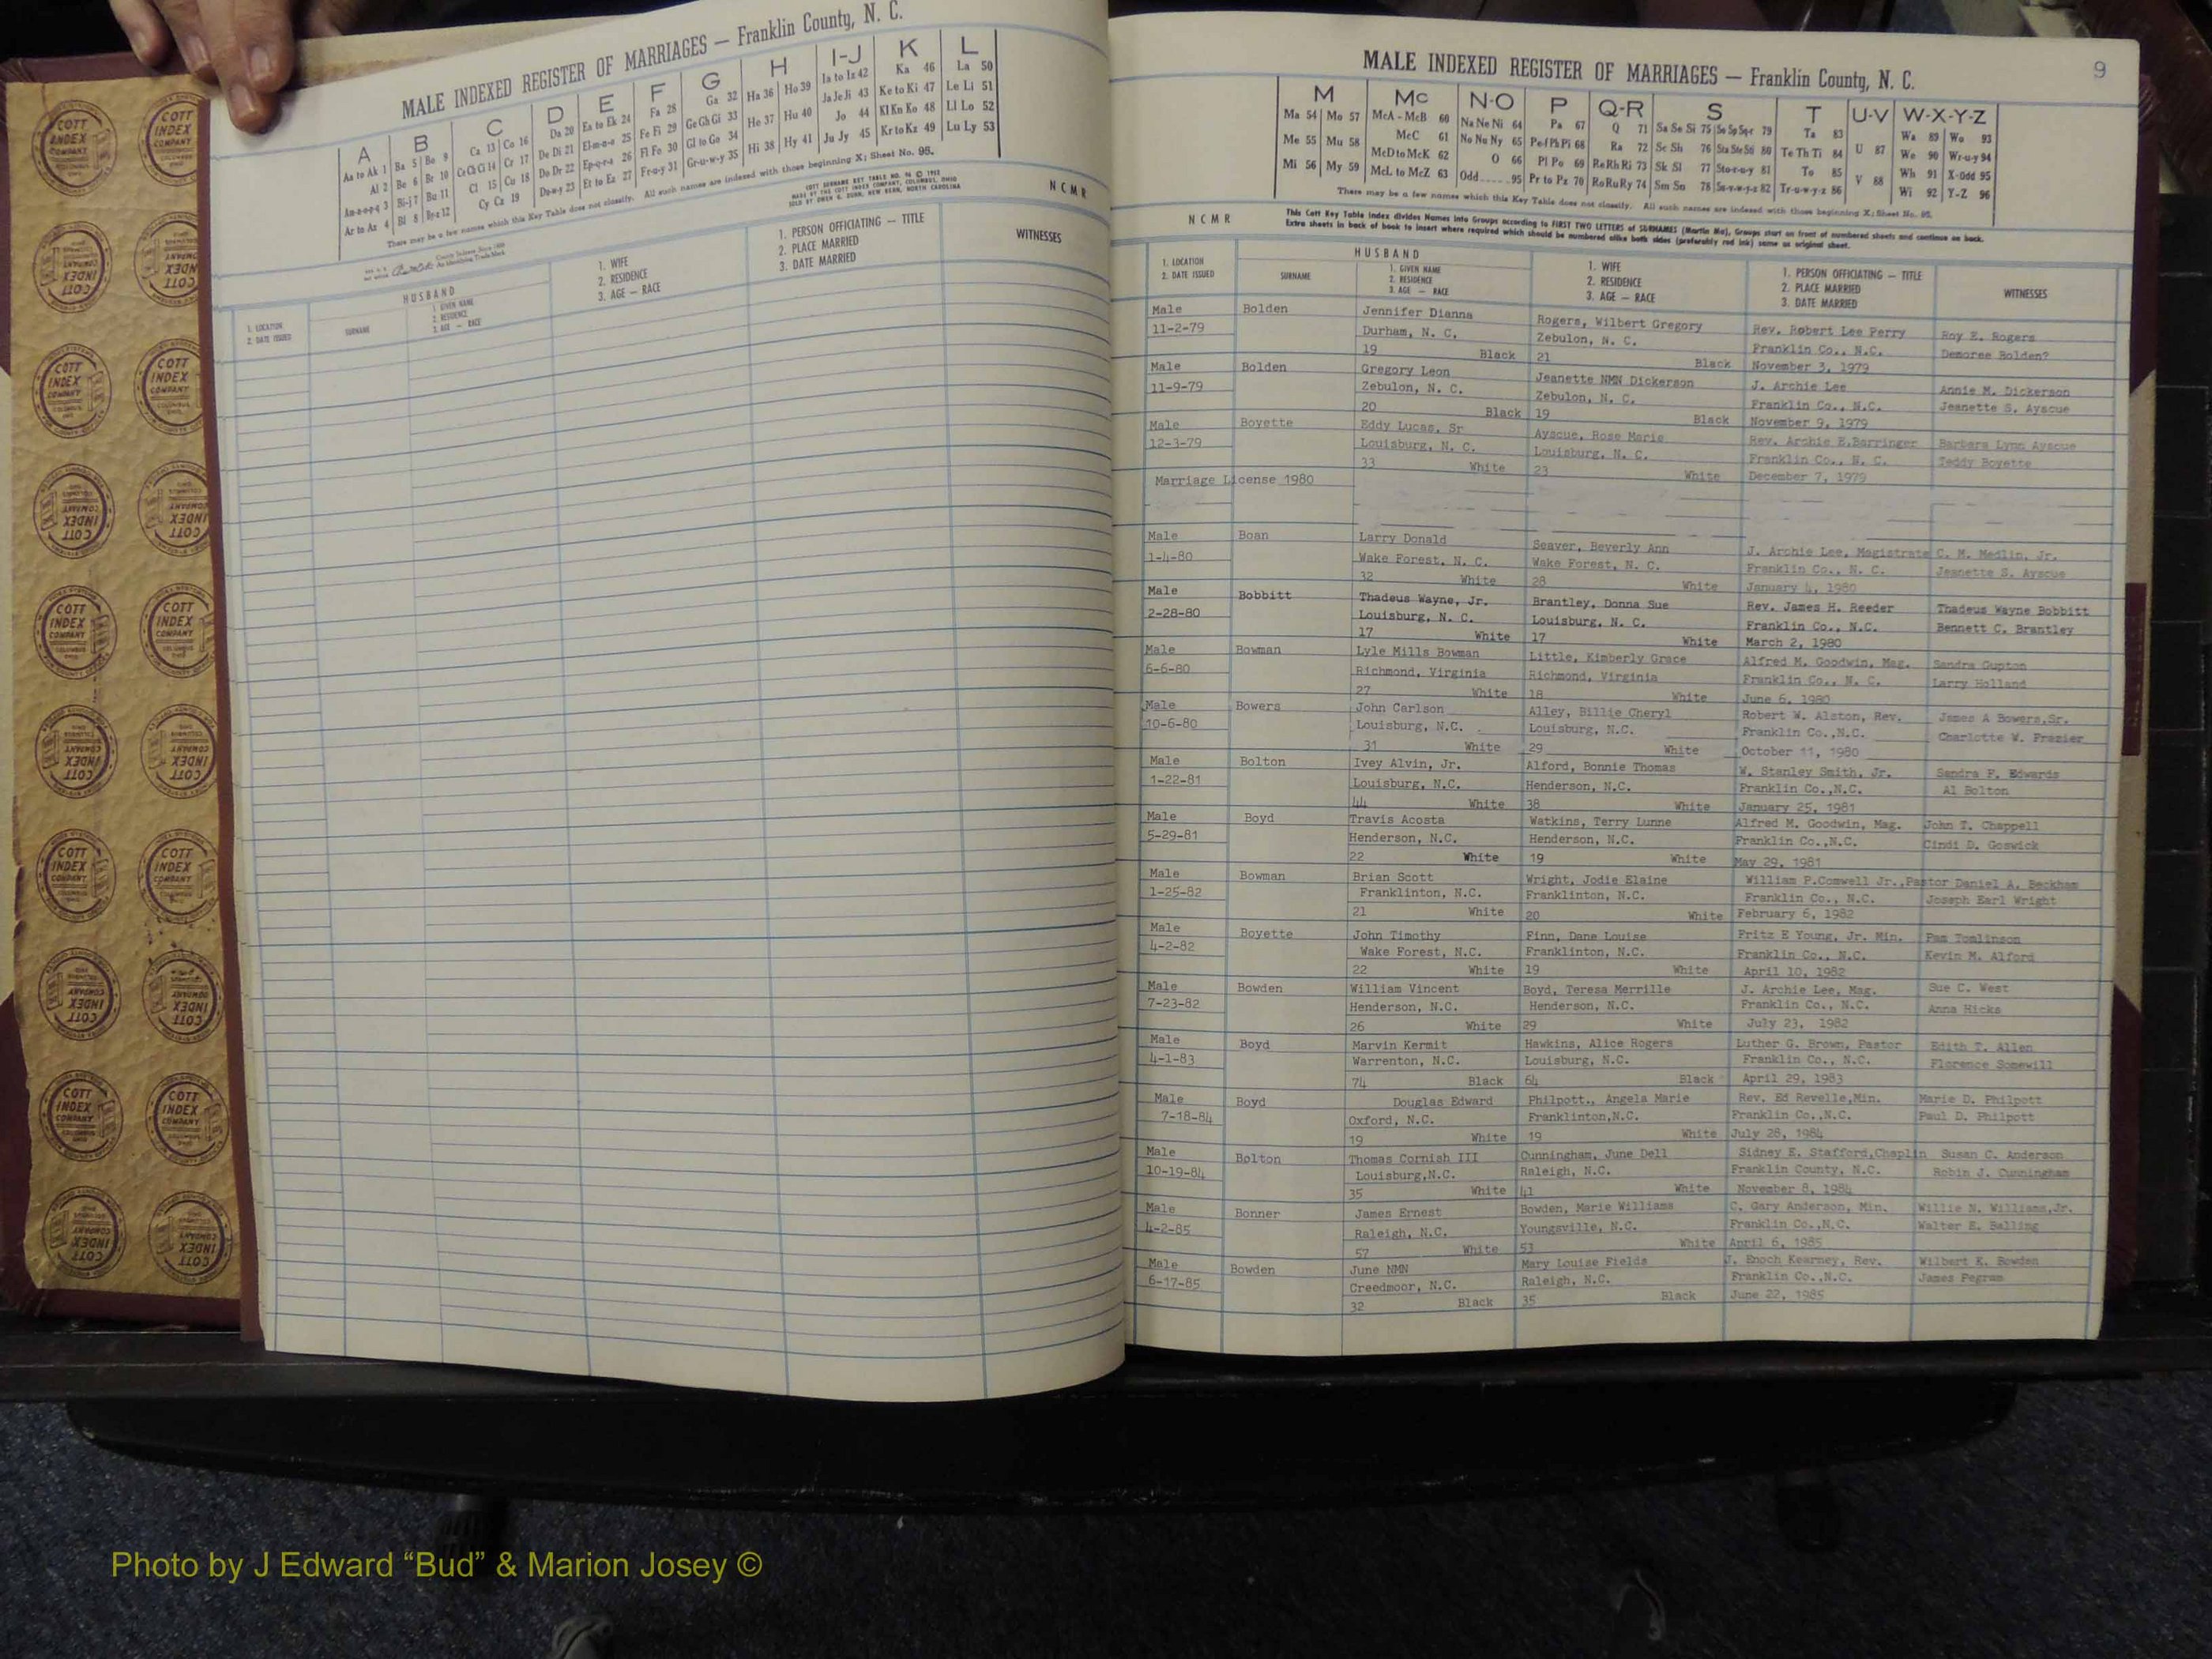 MALE INDEXED REGISTER OF MARRIAGES — Franklin County, N. C.
A B C D E F G H I-J K L
Aa to Ak 1 Ba 5 Bo 9 Ca 13 Co 16 Da 20 Ea to Ek 24 Fa 28 Ga 32 Ha 36 Ho 39 Ia to Iz 42 Ka 46 La 50
Al 2 Be 6 Br 10 Ce Ch Ci 14 Cr 17 De Di 21 El-m-n-o 25 Fe Fi 29 Ge Gh Gi 33 He 37 Hu 40 Ja Je Ji 43 Ke to Ki 47 Le Li 51
Am-n-o-p-q 3 Bi-j 7 Bu 11 Cl 15 Cu 18 Do Dr 22 Ep-q-r-s 26 Fl Fo 30 Gl to Go 34 Hi 38 Hy 41 Jo 44 Kl Kn Ko 48 Ll Lo 52
Ar to Az 4 Bl 8 By-z 12 Cy Cz 19 Du-w-y 23 Et to Ez 27 Fr-u-y 31 Gr-u-w-y 35 Ju Jy 45 Kr to Kz 49 Lu Ly 53
There may be a few names which this Key Table does not classify. All such names are indexed with those beginning X; Sheet No. 95.
N C M R
HUSBAND
1. LOCATION
2. DATE ISSUED
SURNAME
1. GIVEN NAME
2. RESIDENCE
3. AGE — RACE
1. WIFE
2. RESIDENCE
3. AGE — RACE
1. PERSON OFFICIATING — TITLE
2. PLACE MARRIED
3. DATE MARRIED
WITNESSES
MALE INDEXED REGISTER OF MARRIAGES — Franklin County, N. C.
9
M Mc N-O P Q-R S T U-V W-X-Y-Z
Ma 54 Mo 57 McA - McB 60 Na Ne Ni 64 Pa 67 Q 71 Sa Se Si 75 So Sp Sq-r 79 Ta 83 Wa 89 Wo 93
Me 55 Mu 58 McC 61 No Nu Ny 65 Pe Pf Ph Pi 68 Ra 72 Sc Sh 76 Sta Ste Sti 80 Te Th Ti 84 U 87 We 90 Wr-u-y 94
Mi 56 My 59 McD to McK 62 O 66 Pl Po 69 Re Rh Ri 73 Sk Sl 77 Sto-r-u-y 81 To 85 V 88 Wh 91 X-Odd 95
McL to McZ 63 Odd 95 Pr to Pz 70 Ro Ru Ry 74 Sm Sn 78 Su-v-w-y-z 82 Tr-u-w-y-z 86 Wi 92 Y-Z 96
There may be a few names which this Key Table does not classify. All such names are indexed with those beginning X; Sheet No. 95.
N C M R
This Cott Key Table Index divides Names into Groups according to FIRST TWO LETTERS of SURNAMES (Martin Ma), Groups start on front of numbered sheets and continue on back.
Extra sheets in back of book to insert where required which should be numbered alike both sides (preferably red ink) same as original sheet.
HUSBAND
1. LOCATION
2. DATE ISSUED
SURNAME
1. GIVEN NAME
2. RESIDENCE
3. AGE — RACE
1. WIFE
2. RESIDENCE
3. AGE — RACE
1. PERSON OFFICIATING — TITLE
2. PLACE MARRIED
3. DATE MARRIED
WITNESSES
Male Bolden Jennifer Dianna Rogers, Wilbert Gregory Rev. Robert Lee Perry Roy E. Rogers
11-2-79 Durham, N. C. Zebulon, N. C. Franklin Co., N.C. Demoree Bolden?
19 Black 21 Black November 3, 1979
Male Bolden Gregory Leon Jeanette NMN Dickerson J. Archie Lee Annie M. Dickerson
11-9-79 Zebulon, N. C. Zebulon, N. C. Franklin Co., N.C. Jeanette S. Ayscue
20 Black 19 Black November 9, 1979
Male Boyette Eddy Lucas, Sr Ayscue, Rose Marie Rev. Archie E.Barringer Barbara Lynn Ayscue
12-3-79 Louisburg, N. C. Louisburg, N. C. Franklin Co., N. C. Teddy Boyette
33 White 23 White December 7, 1979
Marriage License 1980
Male Boan Larry Donald Seaver, Beverly Ann J. Archie Lee, Magistrate C. M. Medlin, Jr.
1-4-80 Wake Forest, N. C. Wake Forest, N. C. Franklin Co., N. C. Jeanette S. Ayscue
32 White 28 White January 4, 1980
Male Bobbitt Thadeus Wayne, Jr. Brantley, Donna Sue Rev. James H. Reeder Thadeus Wayne Bobbitt
2-28-80 Louisburg, N. C. Louisburg, N. C. Franklin Co., N.C. Bennett C. Brantley
17 White 17 White March 2, 1980
Male Bowman Lyle Mills Bowman Little, Kimberly Grace Alfred M. Goodwin, Mag. Sandra Gupton
6-6-80 Richmond, Virginia Richmond, Virginia Franklin Co., N. C. Larry Holland
27 White 18 White June 6, 1980
Male Bowers John Carlson Alley, Billie Cheryl Robert W. Alston, Rev. James A Bowers,Sr.
10-6-80 Louisburg, N.C. Louisburg, N.C. Franklin Co.,N.C. Charlotte W. Frazier
31 White 29 White October 11, 1980
Male Bolton Ivey Alvin, Jr. Alford, Bonnie Thomas W. Stanley Smith, Jr. Sandra F. Edwards
1-22-81 Louisburg, N.C. Henderson, N.C. Franklin Co.,N.C. Al Bolton
44 White 38 White January 25, 1981
Male Boyd Travis Acosta Watkins, Terry Lunne Alfred M. Goodwin, Mag. John T. Chappell
5-29-81 Henderson, N.C. Henderson, N.C. Franklin Co.,N.C. Cindi D. Goswick
22 White 19 White May 29, 1981
Male Bowman Brian Scott Wright, Jodie Elaine William P.Comwell Jr.,Pastor Daniel A. Beckham
1-25-82 Franklinton, N.C. Franklinton, N.C. Franklin Co., N.C. Joseph Earl Wright
21 White 20 White February 6, 1982
Male Boyette John Timothy Finn, Dane Louise Fritz E Young, Jr. Min. Pam Tomlinson
4-2-82 Wake Forest, N.C. Franklinton, N.C. Franklin Co., N.C. Kevin M. Alford
22 White 19 White April 10, 1982
Male Bowden William Vincent Boyd, Teresa Merrille J. Archie Lee, Mag. Sue C. West
7-23-82 Henderson, N.C. Henderson, N.C. Franklin Co., N.C. Anna Hicks
26 White 29 White July 23, 1982
Male Boyd Marvin Kermit Hawkins, Alice Rogers Luther G. Brown, Pastor Edith T. Allen
4-1-83 Warrenton, N.C. Louisburg, N.C. Franklin Co., N.C. Florence Somewill
74 Black 64 Black April 29, 1983
Male Boyd Douglas Edward Philpott., Angela Marie Rev. Ed Revelle,Min. Marie D. Philpott
7-18-84 Oxford, N.C. Franklinton,N.C. Franklin Co.,N.C. Paul D. Philpott
19 White 19 White July 28, 1984
Male Bolton Thomas Cornish III Cunningham, June Dell Sidney E. Stafford,Chaplin Susan C. Anderson
10-19-84 Louisburg,N.C. Raleigh, N.C. Franklin County, N.C. Robin J. Cunningham
35 White 41 White November 8, 1984
Male Bonner James Ernest Bowden, Marie Williams C. Gary Anderson, Min. Willie N. Williams,Jr.
4-2-85 Raleigh, N.C. Youngsville, N.C. Franklin Co.,N.C. Walter E. Balling
57 White 53 White April 6, 1985
Male Bowden June NMN Mary Louise Fields J. Enoch Kearney, Rev. Wilbert K. Bowden
6-17-85 Creedmoor, N.C. Raleigh, N.C. Franklin Co.,N.C. James Pegram
32 Black 35 Black June 22, 1985
COTT INDEX COMPANY
Photo by J Edward “Bud” & Marion Josey ©